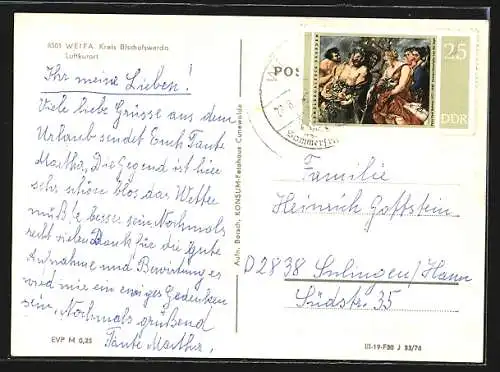 8501 WEIFA, Kreis Bischofswerda
Luftkurort
Ihr meine Lieben!
Viele liebe Grüsse aus dem
Urlaub sendet Euch Tante
Martha. Die Gegend ist hier
sehr schön blos das Wetter
müßte besser sein. Nochmals
recht vielen Dank für die gute
Aufnahme und Bewirtung es
wird mir ein ewiges Gedenken
sein. Nochmals grüßend
Tante Martha.
EVP M 0,25
Aufn. Darach, KONSUM-Fotohaus Cunewalde
POS
25
DDR
Sommerfri
Familie
Heinrich Goffstein
D 2838 Sulingen/Hann
Südstr. 35
III-19-F30 J 33/76